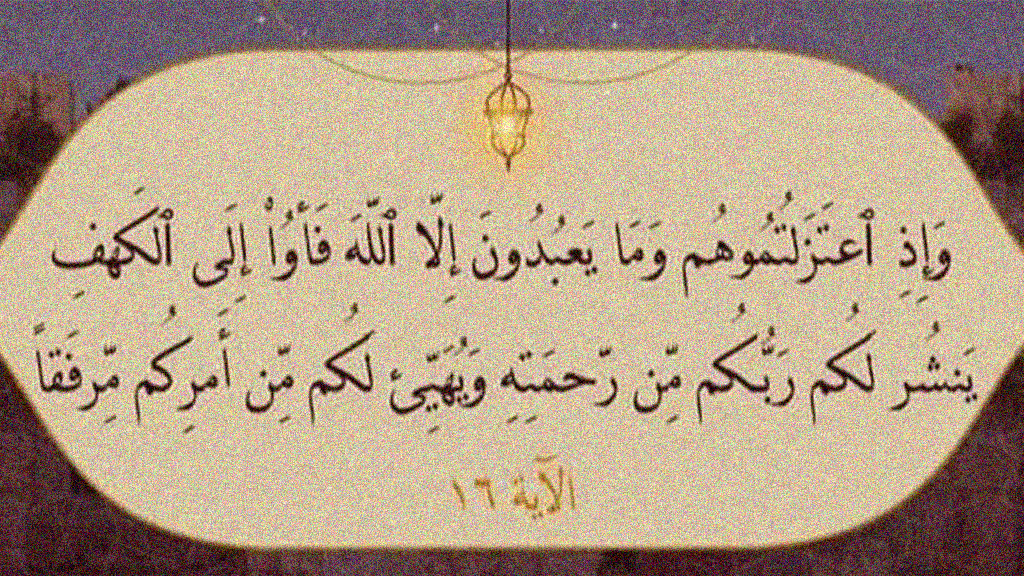 وَإِذِ ٱعتَزَلتُمُوهُم وَمَا يَعبُدُونَ إِلَّا ٱللَّهَ فَأوُۥاْ إِلَى ٱلكَهفِ
يَنشُر لَكُم رَبُّكُم مِّن رَّحمَتِهِ وَيُهَيِّئ لَكُم مِّن أَمرِكُم مِّرفَقاً
الآية ١٦